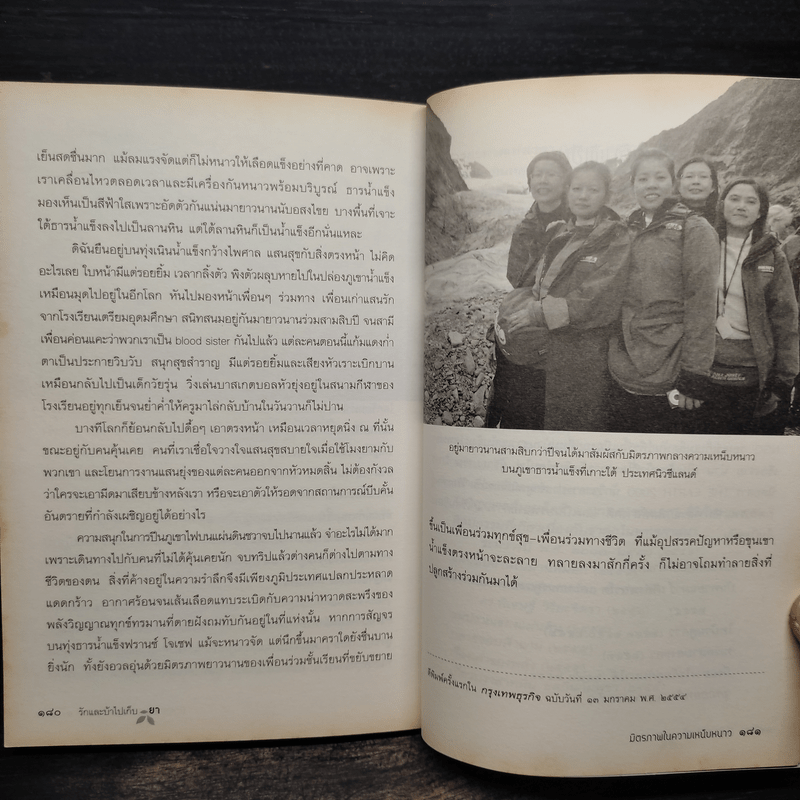 เย็นสดชื่นมาก แม้ลมแรงจัดแต่ก็ไม่หนาวให้เลือดแข็งอย่างที่คาด อาจเพราะ
เราเคลื่อนไหวตลอดเวลาและมีเครื่องกันหนาวพร้อมบริบูรณ์ ธารน้ำแข็ง
มองเห็นเป็นสีฟ้าใสเพราะอัดตัวกันแน่นมายาวนานนับอสงไขย บางพื้นที่เจาะ
ใต้ธารน้ำแข็งลงไปเป็นลานหิน แต่ใต้ลานหินก็เป็นน้ำแข็งอีกนั่นแหละ
ดิฉันยืนอยู่บนทุ่งเนินน้ำแข็งกว้างไพศาล แสนสุขกับสิ่งตรงหน้า ไม่คิด
อะไรเลย ใบหน้ามีแต่รอยยิ้ม เวลากลิ้งตัว พิงตัวผลุบหายไปในปล่องภูเขาน้ำแข็ง
เหมือนมุดไปอยู่ในอีกโลก หันไปมองหน้าเพื่อนๆ ร่วมทาง เพื่อนเก่าแสนรัก
จากโรงเรียนเตรียมอุดมศึกษา สนิทสนมอยู่กันมายาวนานร่วมสามสิบปี จนสามี
เพื่อนค่อนแคะว่าพวกเราเป็น blood sister กันไปแล้ว แต่ละคนตอนนี้แก้มแดงก่ำ
ตาเป็นประกายวิบวับ สนุกสุขสำราญ มีแต่รอยยิ้มและเสียงหัวเราะเบิกบาน
เหมือนกลับไปเป็นเด็กวัยรุ่น วิ่งเล่นบาสเกตบอลหัวยุ่งอยู่ในสนามกีฬาของ
โรงเรียนอยู่ทุกเย็นจนย่ำค่ำให้ครูมาไล่กลับบ้านในวันวานก็ไม่ปาน
บางทีโลกก็ย้อนกลับไปดื้อๆ เอาตรงหน้า เหมือนเวลาหยุดนิ่ง ณ ที่นั้น
ขณะอยู่กับคนคุ้นเคย คนที่เราเชื่อใจวางใจแสนสุขสบายใจเมื่อใช้โมงยามกับ
พวกเขา และโยนการงานแสนยุ่งของแต่ละคนออกจากหัวหมดสิ้น ไม่ต้องกังวล
ว่าใครจะเอามีดมาเสียบข้างหลังเรา หรือจะเอาตัวให้รอดจากสถานการณ์บีบคั้น
อันตรายที่กำลังเผชิญอยู่ได้อย่างไร
ความสนุกในการปีนภูเขาไฟบนแผ่นดินชวาจบไปนานแล้ว จำอะไรไม่ได้มาก
เพราะเดินทางไปกับคนที่ไม่ได้คุ้นเคยนัก จบทริปแล้วต่างคนก็ต่างไปตามทาง
ชีวิตของตน สิ่งที่ค้างอยู่ในความรำลึกจึงมีเพียงภูมิประเทศแปลกประหลาด
แดดกร้าว อากาศร้อนจนเส้นเลือดแทบระเบิดกับความน่าหวาดสะพรึงของ
พลังวิญญาณทุกข์ทรมานที่ตายฝังถมทับกันอยู่ในที่แห่งนั้น หากการสัญจร
บนทุ่งธารน้ำแข็งฟรานซ์ โจเซฟ แม้จะหนาวจัด แต่นึกขึ้นมาคราใดยังชื่นบาน
ยิ่งนัก ทั้งยังอวลอุ่นด้วยมิตรภาพยาวนานของเพื่อนร่วมชั้นเรียนที่ขยับขยาย
๑๘๐ รักและบ้าไปเก็บ ยา
อยู่มายาวนานสามสิบกว่าปีจนได้มาสัมผัสกับมิตรภาพกลางความเหน็บหนาว
บนภูเขาธารน้ำแข็งที่เกาะใต้ ประเทศนิวซีแลนด์
ขึ้นเป็นเพื่อนร่วมทุกข์สุข–เพื่อนร่วมทางชีวิต ที่แม้อุปสรรคปัญหาหรือขุนเขา
น้ำแข็งตรงหน้าจะละลาย ทลายลงมาสักกี่ครั้ง ก็ไม่อาจโถมทำลายสิ่งที่
ปลูกสร้างร่วมกันมาได้
ตีพิมพ์ครั้งแรกใน กรุงเทพธุรกิจ ฉบับวันที่ ๑๓ มกราคม พ.ศ. ๒๕๕๔
มิตรภาพในความเหน็บหนาว ๑๘๑